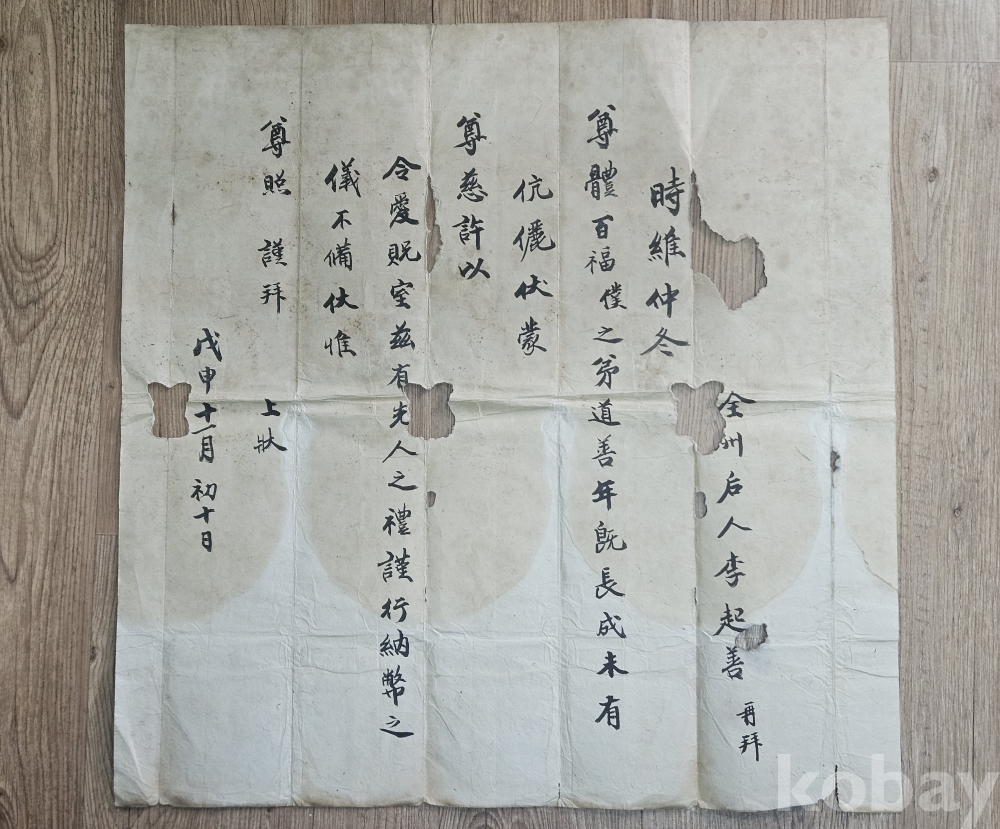 全州后人李起善 再拜
時維仲冬
尊體百福僕之弟道善年旣長成未有
伉儷伏蒙
尊慈許以
令愛貺室玆有先人之禮謹行納幣之
儀不備伏惟
尊照 謹拜 上狀
戊申十一月初十日
kobay